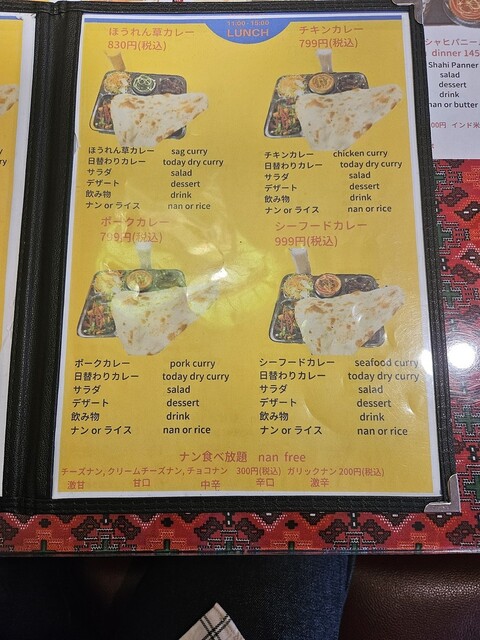 11:00 - 18:00
LUNCH
ほうれん草カレー
830円(税込)
チキンカレー
799円(税込)
ほうれん草カレー sag curry
日替わりカレー today dry curry
サラダ salad
デザート dessert
飲み物 drink
ナン or ライス nan or rice
チキンカレー chicken curry
日替わりカレー today dry curry
サラダ salad
デザート dessert
飲み物 drink
ナン or ライス nan or rice
ポークカレー
799円(税込)
シーフードカレー
999円(税込)
ポークカレー pork curry
日替わりカレー today dry curry
サラダ salad
デザート dessert
飲み物 drink
ナン or ライス nan or rice
シーフードカレー seafood curry
日替わりカレー today dry curry
サラダ salad
デザート dessert
飲み物 drink
ナン or ライス nan or rice
ナン食べ放題 nan free
チーズナン, クリームチーズナン, チョコナン 300円(税込) ガリックナン 200円(税込)
激甘 甘口 中辛 辛口 激辛
シャヒパニー
dinner 145
Shahi Panner
salad
dessert
drink
nan or butter
00円 インド米